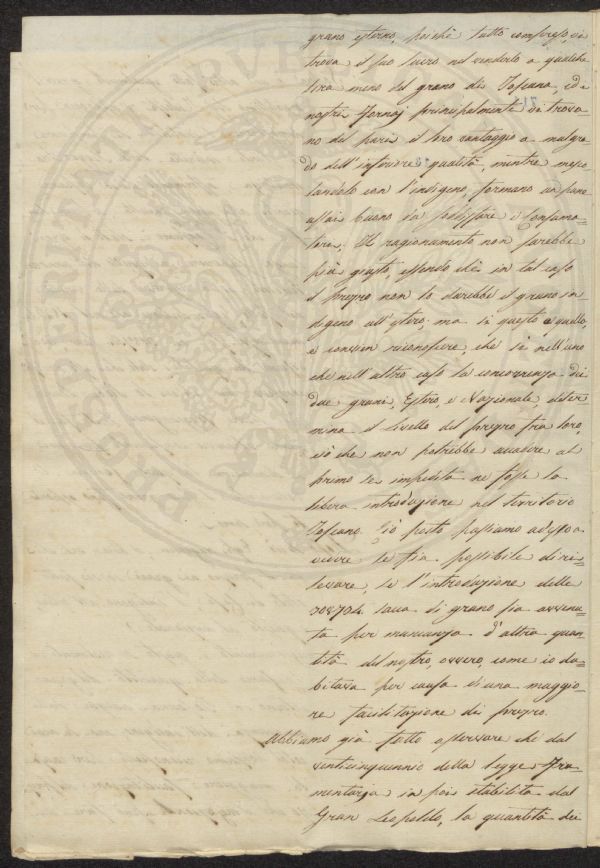 grano esterno, poichè tutto compreso, vi
trova il suo lucro nel venderlo a qualche
lira meno del grano di Toscana, ed i
nostri Fornaj principalmente vi trova-
no del pari il loro vantaggio a malgra-
do dell'inferiore qualità, mentre mesco-
landolo con l'indigeno, formano un pane
assai buono da sodisfare i Consuma=
tori. Il ragionamento non sarebbe
più giusto essendo chè in tal caso
il prezzo non lo darebbe il grano in
digeno all'estero; ma sì questo a quello,
e convien riconoscere, che sì nell'uno
che nell'altro caso la concorrenza dei
due grani, Estero, e Nazionale, deter
mina il livello del prezzo fra loro,
ciò che non potrebbe accadere al
primo se impedita ne fosse la
libera introduzione nel territorio
Toscano. Ciò posto passiamo adesso a
vedere se sia possibile di ri=
levare, se l'introduzione delle
708704 sacca di grano sia avvenu=
ta per mancanza d'altra quan=
tità del nostro, ovvero, come io du=
bitava per causa di una maggio=
re facilitazione dei prezzo.
Abbiamo già fatto osservare che dal
venticinquennio della legge Fru=
mentaria in poi stabilita dal
Gran Leopoldo, la quantità dei
PROSPERITAS
PVBLI